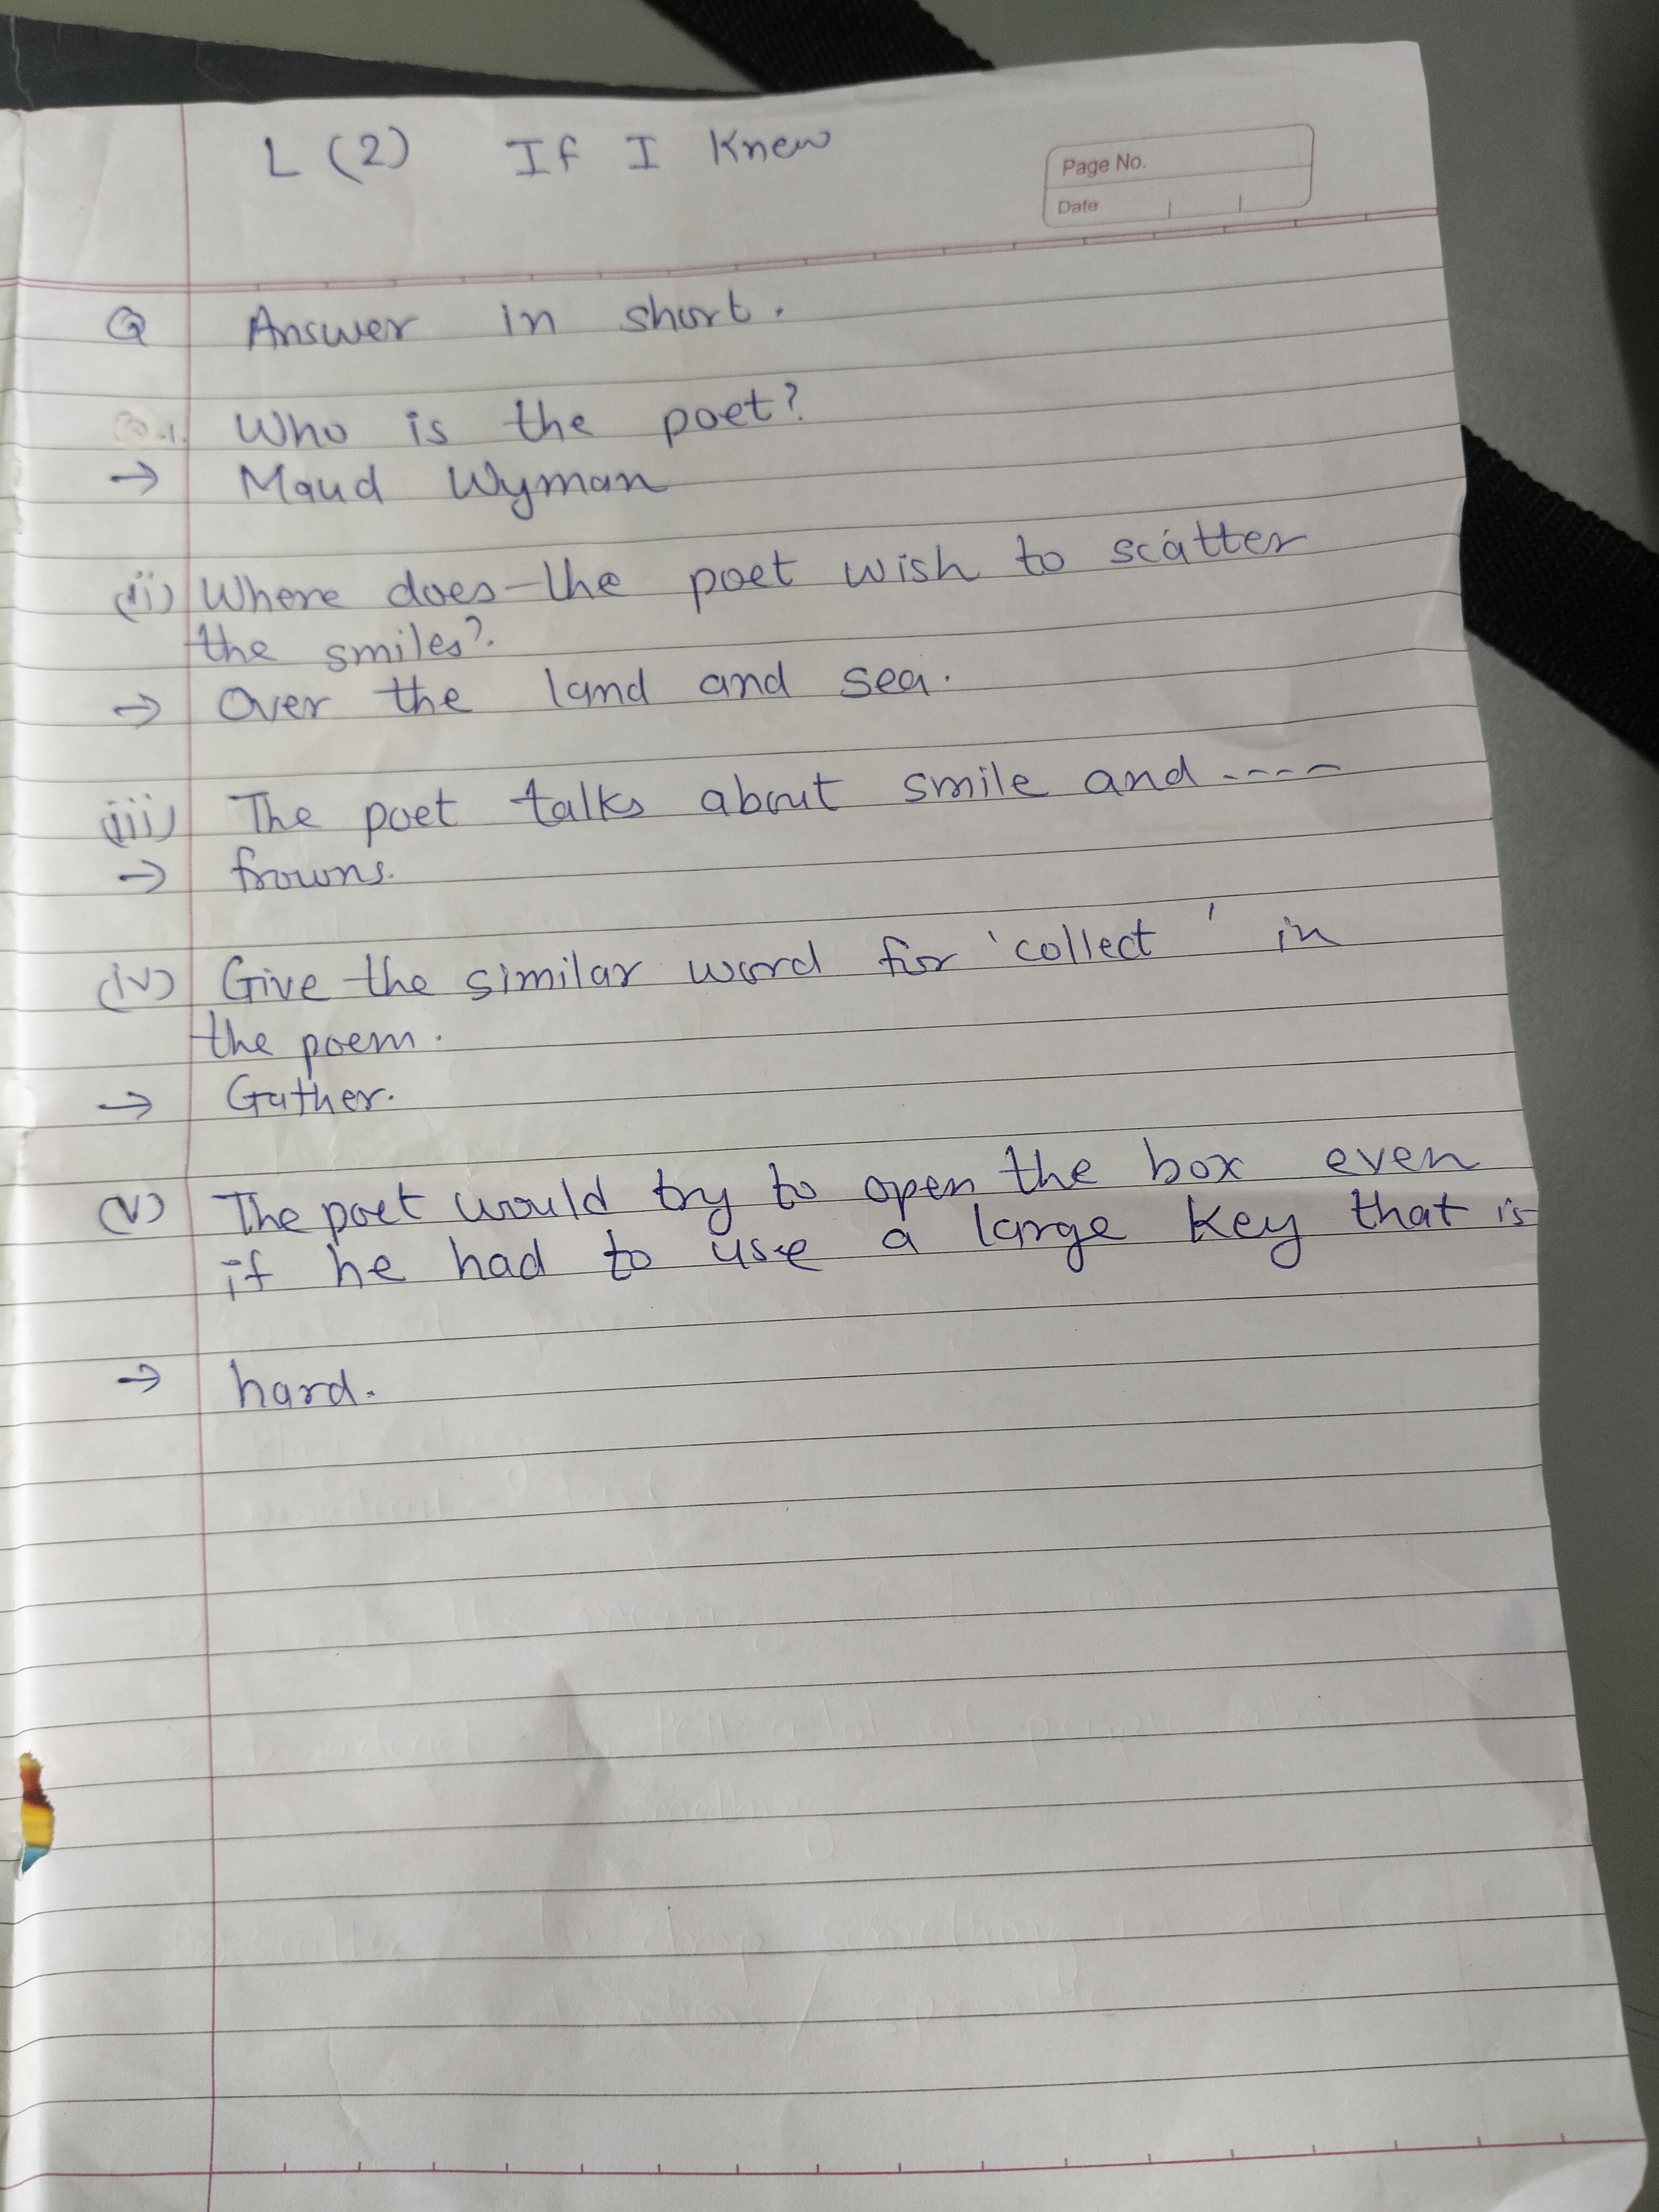 L (2) If I Knew
Page No.
Date
Q Answer in short.
1. Who is the poet?
→ Maud Wyman
(ii) Where does the poet wish to scatter
the smiles?
→ Over the land and sea.
(iii) The poet talks about smile and ----
→ frowns.
(iv) Give the similar word for 'collect' in
the poem.
→ Gather.
(v) The poet would try to open the box even
if he had to use a large key that is
→ hard.